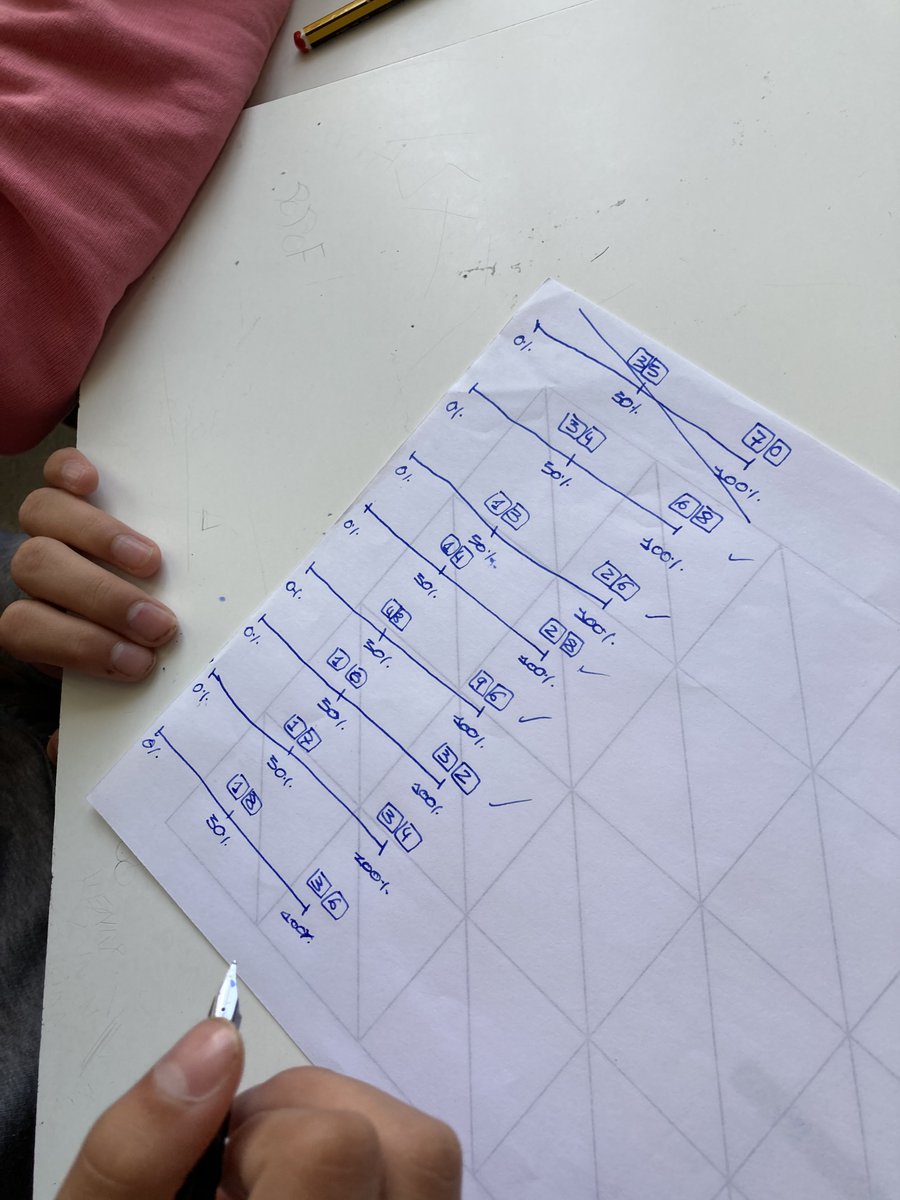 0% 50% 35 100% 70
0% 50% 34 100% 68 ✓
0% 50% 13 100% 26 ✓
0% 50% 14 100% 28 ✓
0% 50% 48 100% 96 ✓
0% 50% 16 100% 32 ✓
0% 50% 17 100% 34
0% 50% 18 100% 36